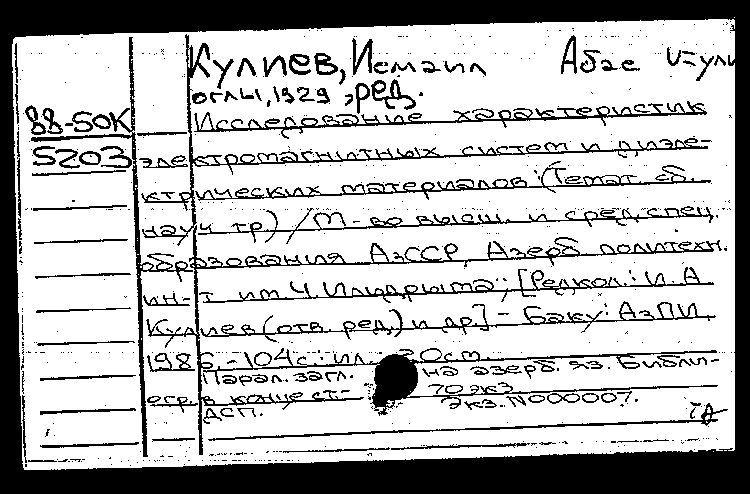 Кулиев, Исмаил Абас Кули
оглы, 1929, ред.
88-50К
5203
Исследование характеристик
электромагнитных систем и диэле-
ктрических материалов: (Темат. сб.
науч тр.) / М-во высш. и сред. спец.
образования АзССР, Азерб. политехн.
ин-т им. Ч. Илдрыма; [Редкол.: И. А
Кулиев (отв. ред.) и др.] - Баку: АзПИ,
1986. - 104с.: ил.; 20см
Парал. загл. на азерб. яз. Библи-
огр. в конце ст- 70 экз
ДСП. Экз. N000007.